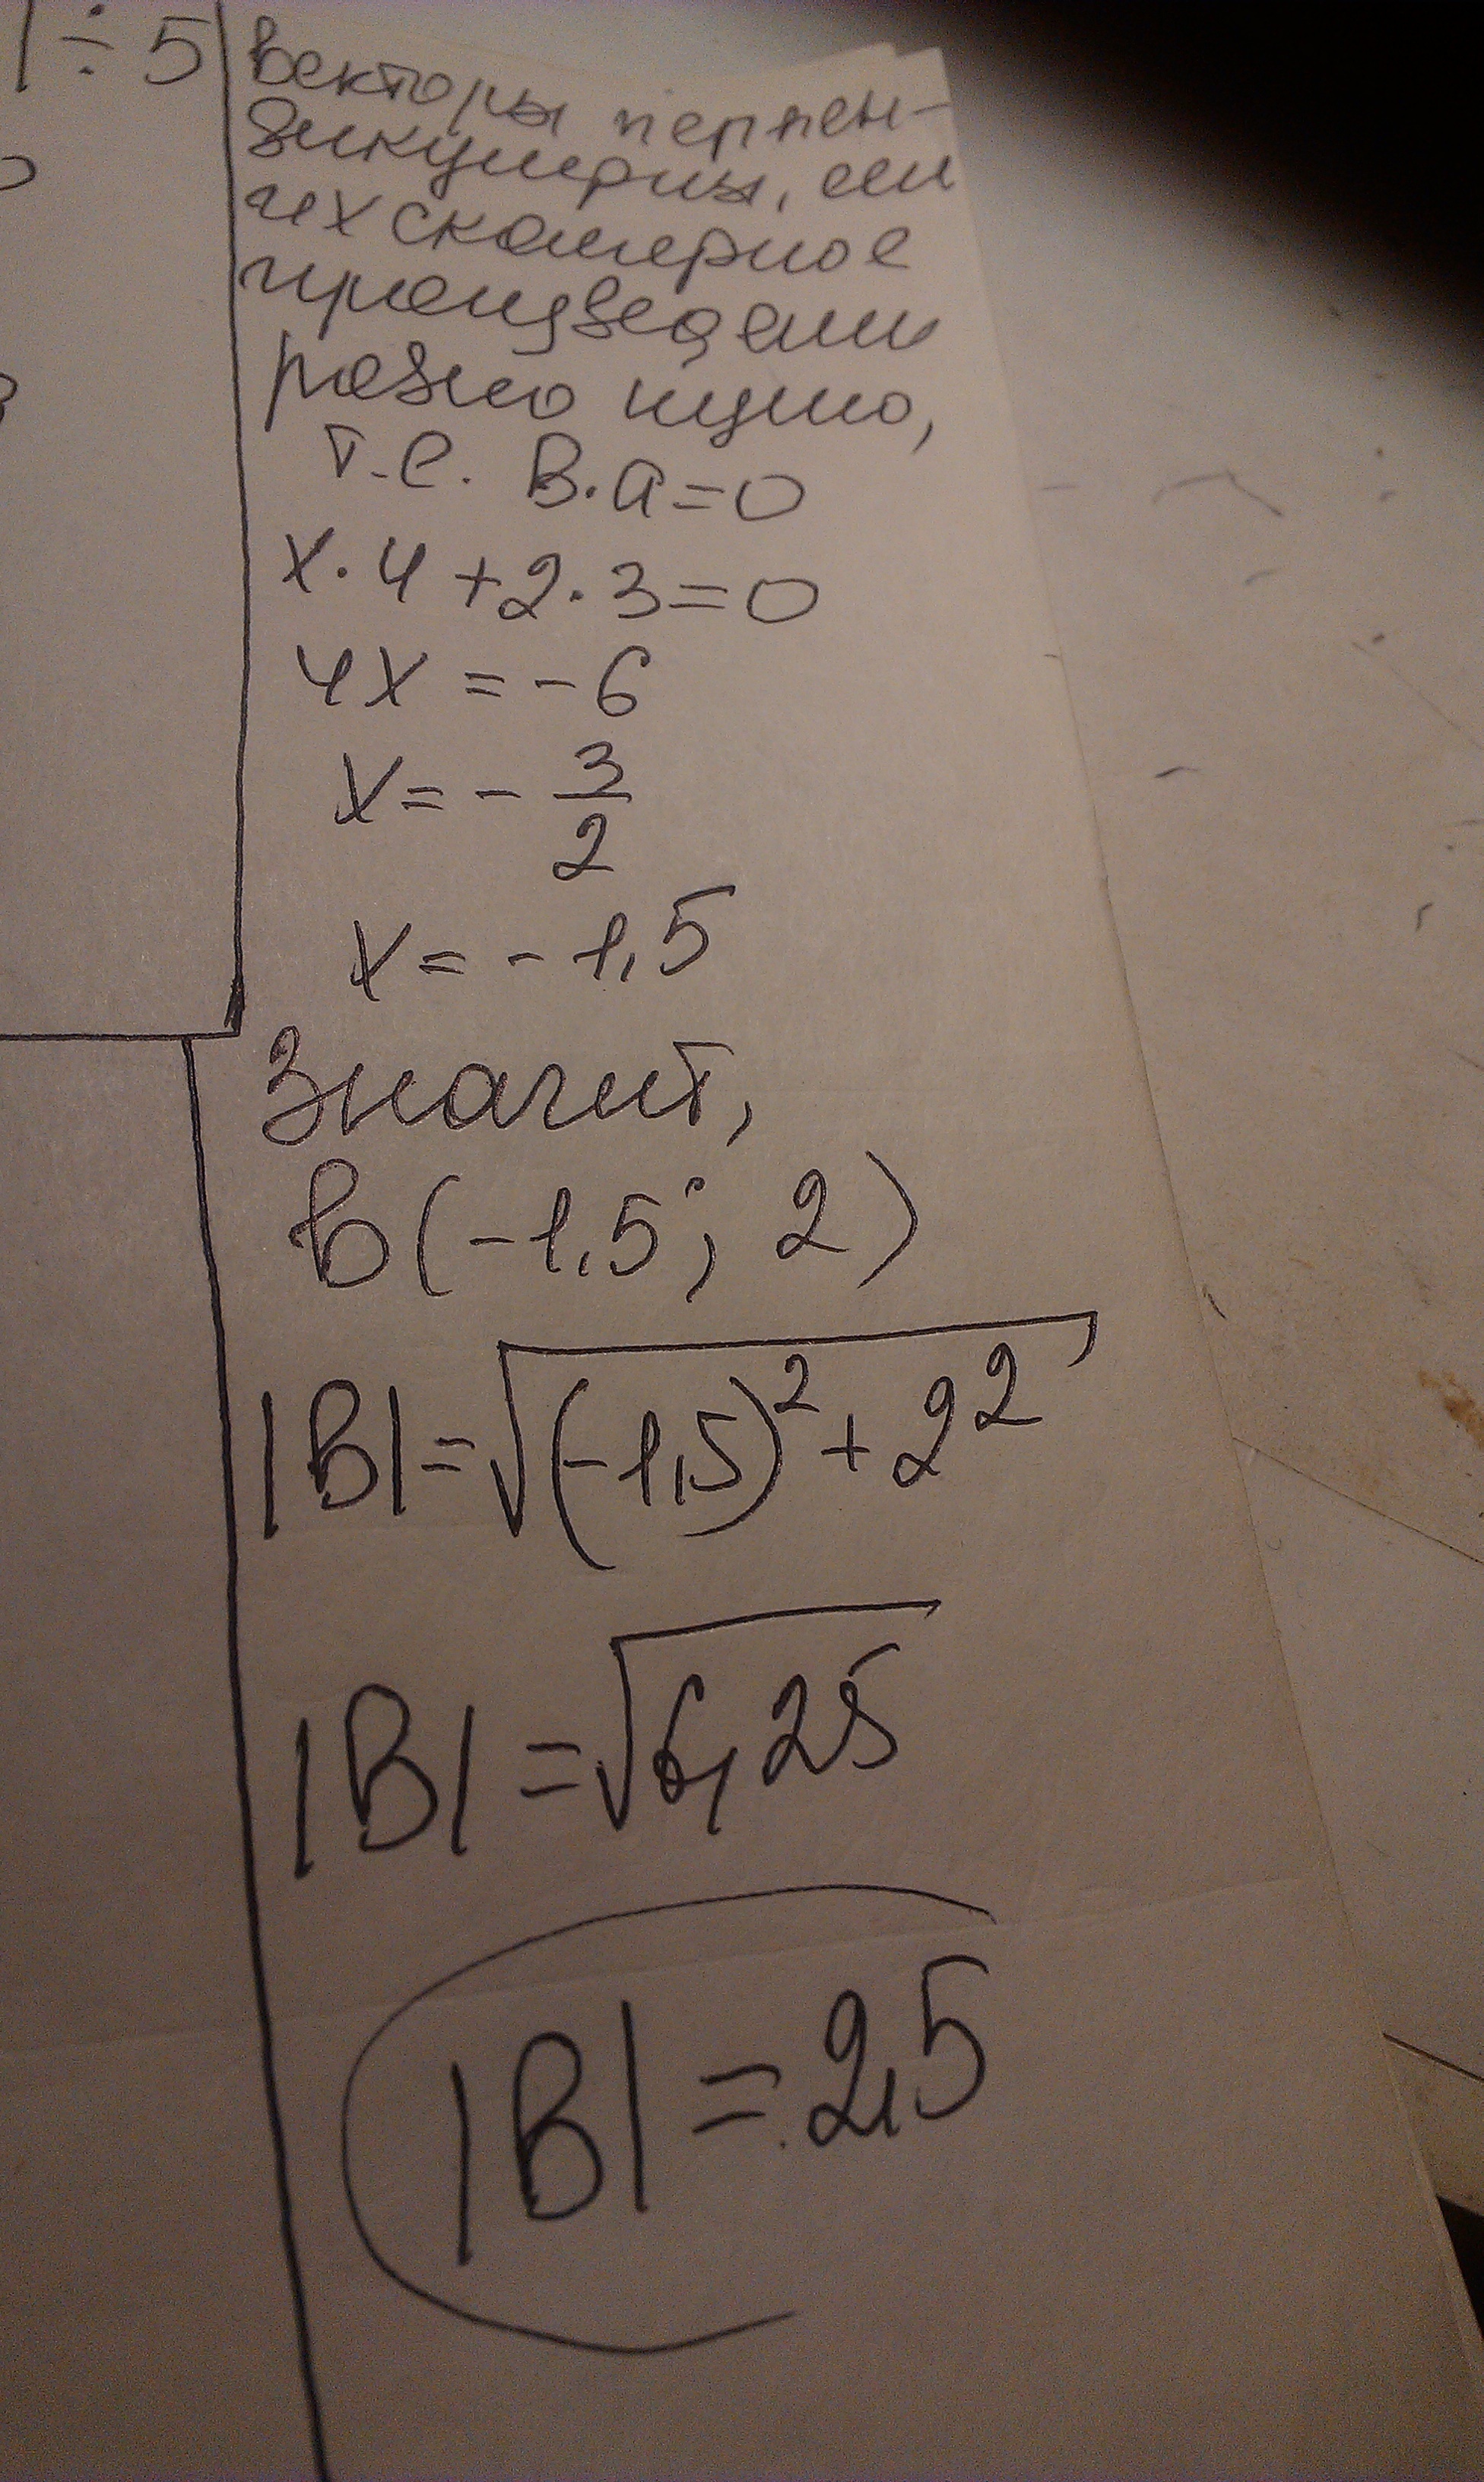 1 ÷ 5
Векторы перпен-
дикулярны, если
их скалярное
произведение
равно нулю,
т.е. B·a=0
x·4+2·3=0
4x=-6
x=-3/2
x=-1,5
Значит,
b(-1,5; 2)
|B|=√((-1,5)²+2²)
|B|=√6,25
|B|=2,5